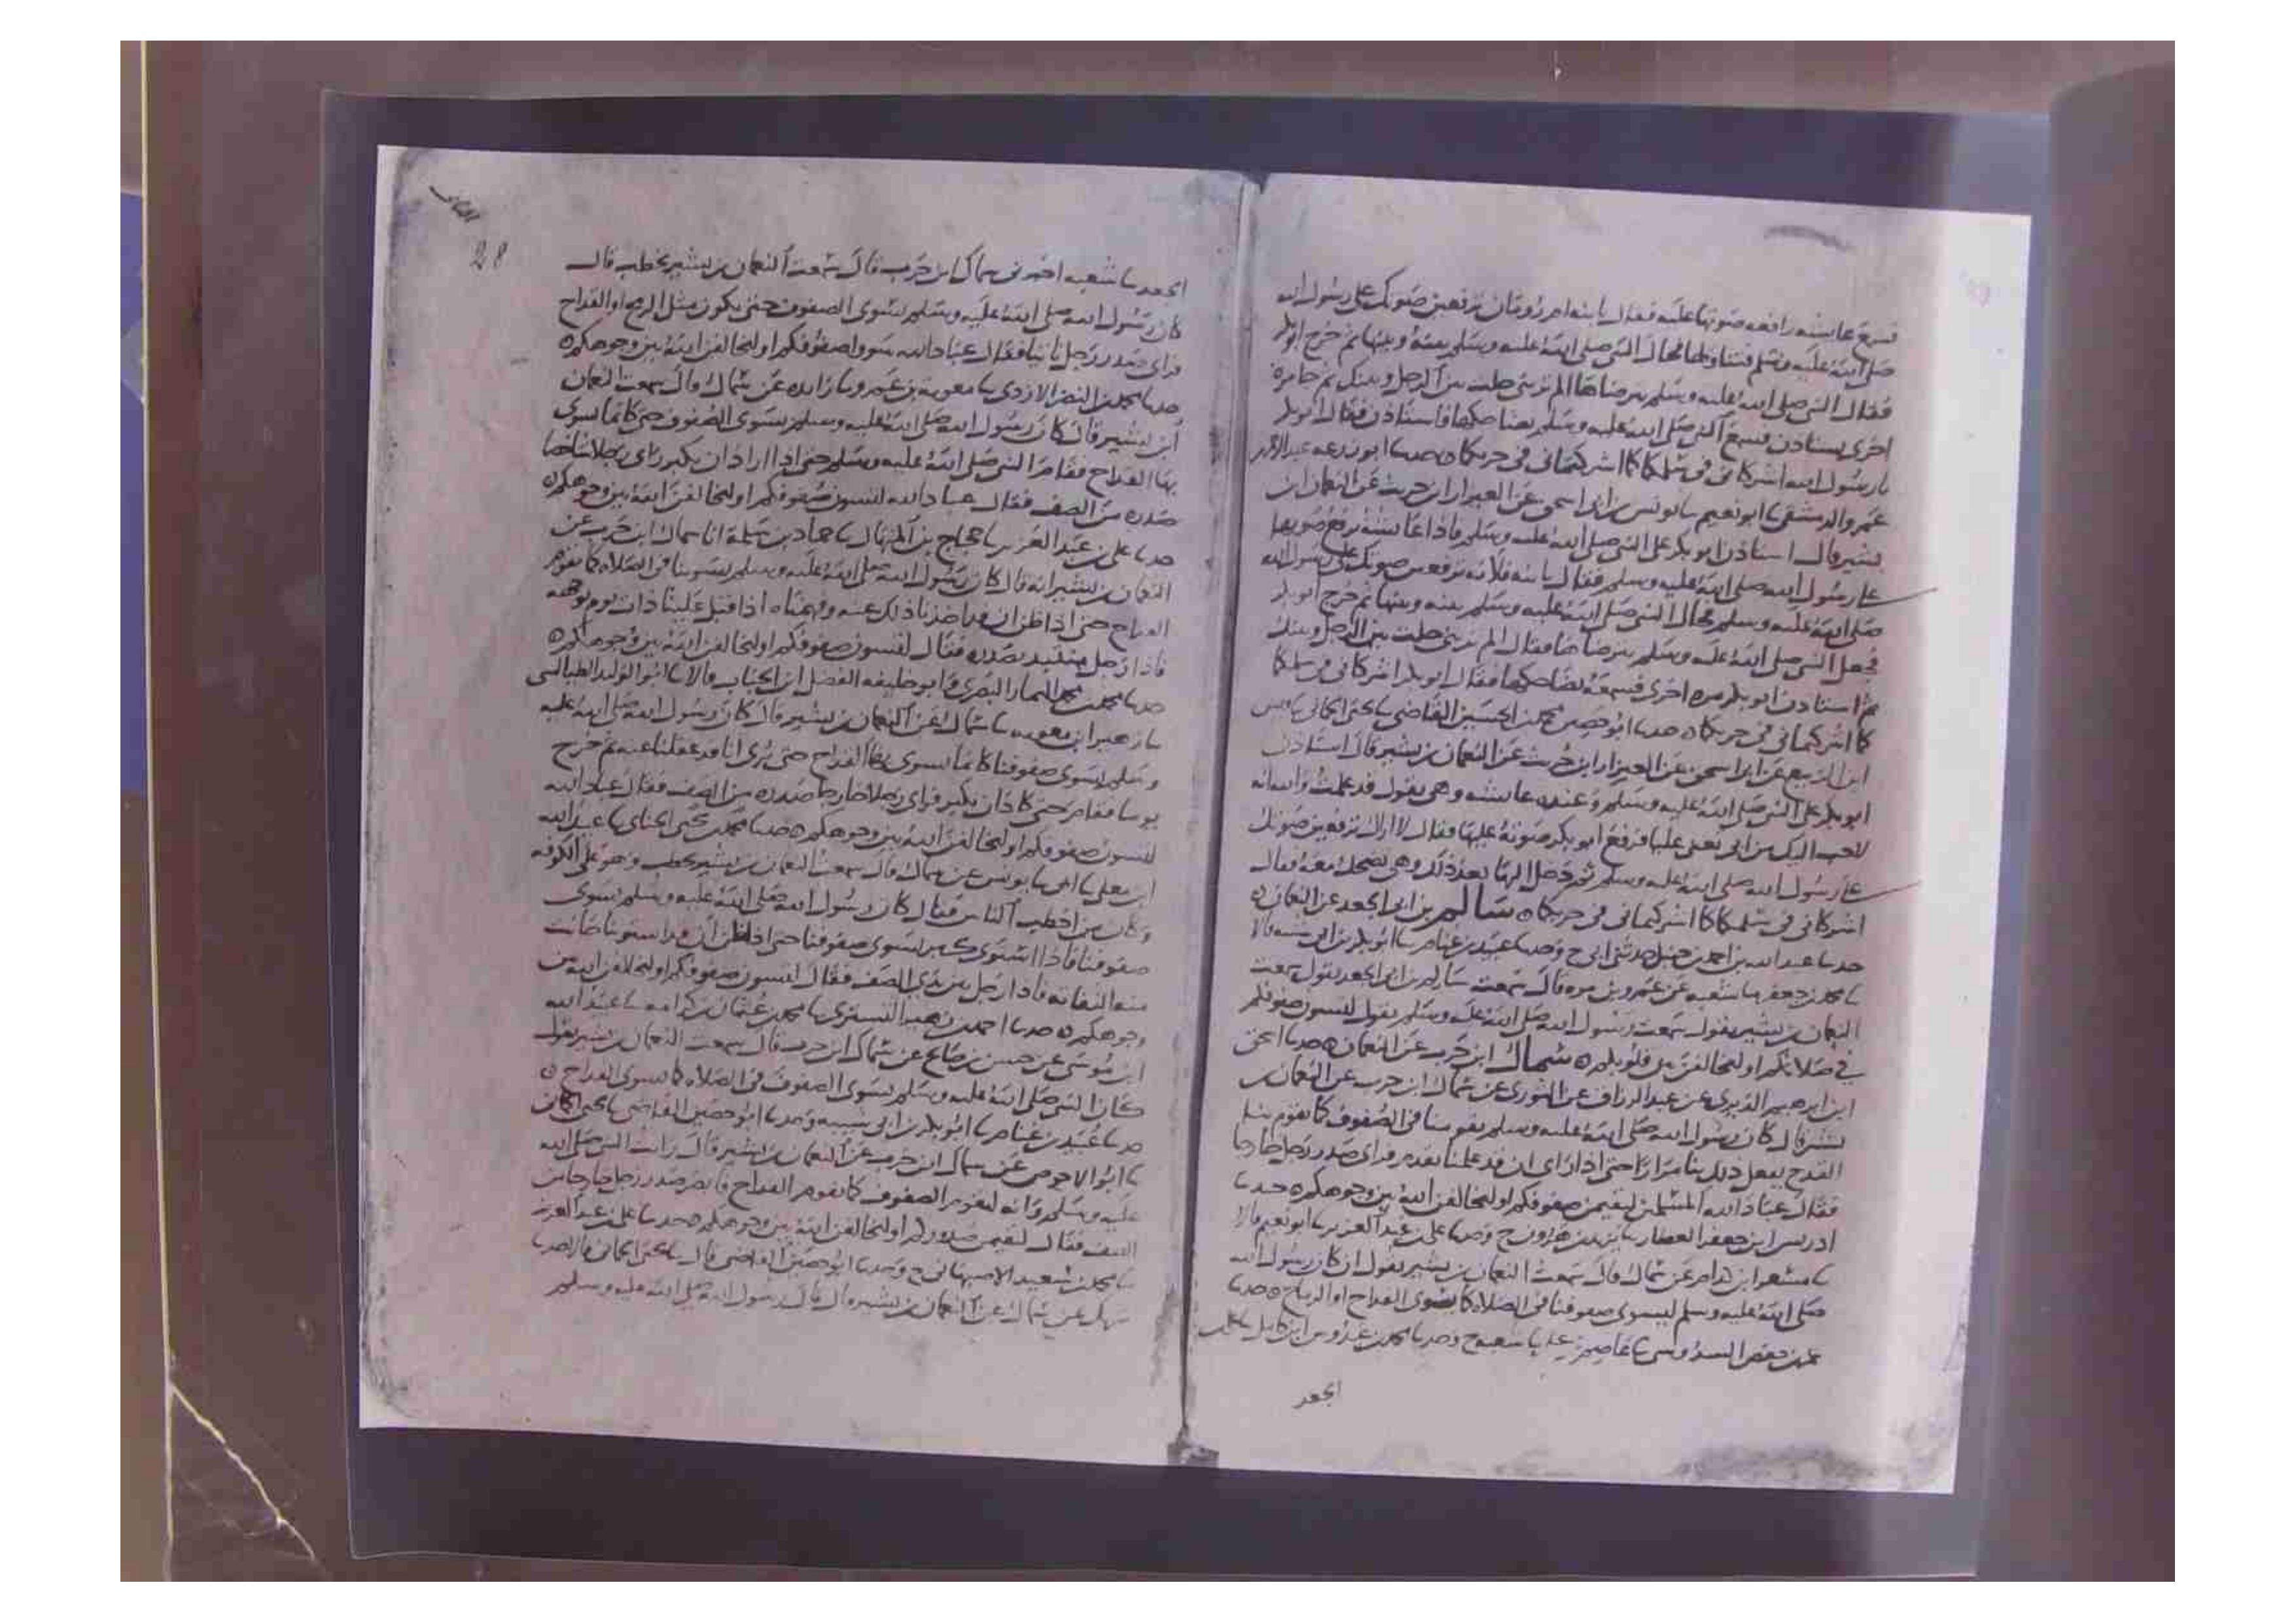 فسمع عايشه رافعه صوتها عليه فقال يا بنه ام رومان ترفعين صوتك على رسول الله
صلى الله عليه وسلم فتناولها فحال النبي صلى الله عليه وسلم بينه وبينها ثم خرج ابو بكر
فقال النبي صلى الله عليه وسلم يترضاها الم تريني حلت بين الرجل وبينك ثم جا مرة
اخرى يستاذن فسمع النبي صلى الله عليه وسلم يضاحكها فاستاذن فقال ابو بكر
يا رسول الله اشركاني في سلمكما كما اشركتماني في حربكما ٥ حدثنا ابو زرعه عبد الرحمن
عمرو الدمشقي نا ابو نعيم نا يونس بن ابي اسحق عن العيزار ابن حريث عن النعمان ابن
بشير قال استاذن ابو بكر على النبي صلى الله عليه وسلم فاذا عايشة ترفع صوتها
على رسول الله صلى الله عليه وسلم فقال يا بنه فلانه ترفعين صوتك على رسول الله
صلى الله عليه وسلم فحال النبي صلى الله عليه وسلم بينه وبينها ثم خرج ابو بكر
فجعل النبي صلى الله عليه وسلم يترضاها فقال الم تريني حلت بين الرجل وبينك
ثم استاذن ابو بكر مره اخرى فسمعه يضاحكها فقال ابو بكر اشركاني في سلمكما
كما اشركتماني في حربكما ٥ حدثنا ابو حصين محمد بن الحسين القاضي نا يحيى الحماني نا قيس
ابن الربيع عن ابي اسحق عن العيزار ابن حريث عن النعمان بن بشير قال استاذن
ابو بكر على النبي صلى الله عليه وسلم وعنده عايشه وهي تقول قد علمت والله انه
لاحب اليك من ابي يعني عليا فرفع ابو بكر صوته عليها فقال لا اراك ترفعين صوتك
على رسول الله صلى الله عليه وسلم ثم دخل اليها بعد ذلك وهي تضحك معه فقال
اشركاني في سلمكما كما اشركتماني في حربكما ٥ سالم بن ابي الجعد عن النعمان ٥
حدثنا عبد الله بن احمد بن حنبل حدثني ابي ح وحدثنا عبيد بن غنام نا ابو بكر بن ابي شيبه قالا
نا محمد بن جعفر نا شعبه عن عمرو بن مره قال سمعت سالم بن ابي الجعد يقول سمعت
النعمان بن بشير يقول سمعت رسول الله صلى الله عليه وسلم يقول لتسون صفوفكم
في صلاتكم او ليخالفن بين قلوبكم ٥ سماك ابن حرب عن النعمان ٥ حدثنا اسحق
ابن ابرهيم الدبري عن عبد الرزاق عن الثوري عن سماك ابن حرب عن النعمان بن
بشير قال كان رسول الله صلى الله عليه وسلم يقومنا في الصفوف كما تقوم
القدح يفعل ذلك بنا مرارا حتى اذا راى ان قد علمنا تقدم فراى صدر رجل خارجا
فقال عباد الله المسلمين لتقيمن صفوفكم او ليخالفن الله بين وجوهكم ٥ حدثنا
ادريس ابن جعفر العطار نا يزيد بن هرون ح وحدثنا علي بن عبد العزيز نا ابو نعيم قالا
نا مسعر ابن كدام عن سماك قال سمعت النعمان بن بشير يقول ان كان رسول الله
صلى الله عليه وسلم ليسوي صفوفنا في الصلاه كما يسوى القداح او الرماح ٥ حدثنا
عمر بن حفص السدوسي نا عاصم بن علي نا شعبه ح وحدثنا محمد بن عبدوس ابن كامل نا علي بن
الجعد
28
الجعد نا شعبه اخبرني سماك ابن حرب قال سمعت النعمان بن بشير يخطب قال
كان رسول الله صلى الله عليه وسلم يسوي الصفوف حتى يكون مثل الرمح او القداح
فراى صدر رجل ناتيا فقال عباد الله سووا صفوفكم او ليخالفن الله بين وجوهكم ٥
حدثنا محمد بن النضر الازدي نا معوية بن عمرو نا زايده عن سماك قال سمعت النعمان
ابن بشير قال كان رسول الله صلى الله عليه وسلم يسوي الصفوف حتى كانما يسوى
بها القداح فقام النبي صلى الله عليه وسلم حتى اذا اراد ان يكبر راى رجلا شاخصا
صدره من الصف فقال عباد الله لتسون صفوفكم او ليخالفن الله بين وجوهكم ٥
حدثنا علي بن عبد العزيز نا حجاج بن المنهال نا حماد بن سلمة انا سماك ابن حرب عن
النعمان بن بشير انه قال كان رسول الله صلى الله عليه وسلم يسوينا في الصلاه كما تقوم
القداح حتى اذا ظن ان قد اخذنا ذلك عنه وفهمناه اذا قبل علينا ذات يوم بوجهه
فاذا رجل منتبذ بصدره فقال لتسون صفوفكم او ليخالفن الله بين وجوهكم ٥
حدثنا محمد بن محمد التمار البصري وابو خليفه الفضل ابن الحباب قالا نا ابو الوليد الطيالسي
نا زهير ابن معويه نا سماك عن النعمان بن بشير قال كان رسول الله صلى الله عليه
وسلم يسوي صفوفنا كانما يسوى بها القداح حتى يرى انا قد عقلنا عنه ثم خرج
يوما فقام حتى كاد ان يكبر فراى رجلا خارجا صدره من الصف فقال عباد الله
لتسون صفوفكم او ليخالفن الله بين وجوهكم ٥ حدثنا محمد بن يحيى نا عبد الله
ابن يعلى نا ابي نا يونس عن سماك قال سمعت النعمان بن بشير يخطب وهو على الكوفه
وكان من اخطب الناس فقال كان رسول الله صلى الله عليه وسلم يسوي
صفوفنا فاذا استوى كبر يسوي صفوفنا حتى اذا ظن ان قد استوينا حانت
منه التفاته فاذا رجل بين يدي الصف فقال لتسون صفوفكم او ليخالفن الله بين
وجوهكم ٥ حدثنا احمد بن زهير التستري نا محمد بن عثمان بن كرامه نا عبيد الله
ابن موسى عن حسن بن صالح عن سماك ابن حرب قال سمعت النعمان بن بشير يقول
كان النبي صلى الله عليه وسلم يسوي الصفوف في الصلاه كما تسوى القداح ٥
حدثنا عبيد بن غنام نا ابو بكر بن ابي شيبه وحدثنا ابو حصين القاضي نا يحيى الحماني
نا ابو الاحوص عن سماك ابن حرب عن النعمان بن بشير قال رايت النبي صلى الله
عليه وسلم وانه ليقوم الصفوف كما تقوم القداح فابصر صدر رجل خارجا من
الصف فقال لتقيمن صدوركم او ليخالفن الله بين وجوهكم ٥ حدثنا علي بن عبد العزيز
نا محمد بن سعيد الاصبهاني ح وحدثنا ابو حصين القاضي قال نا يحيى الحماني قالا حدثنا
شريك عن سماك عن النعمان بن بشير قال قال رسول الله صلى الله عليه وسلم